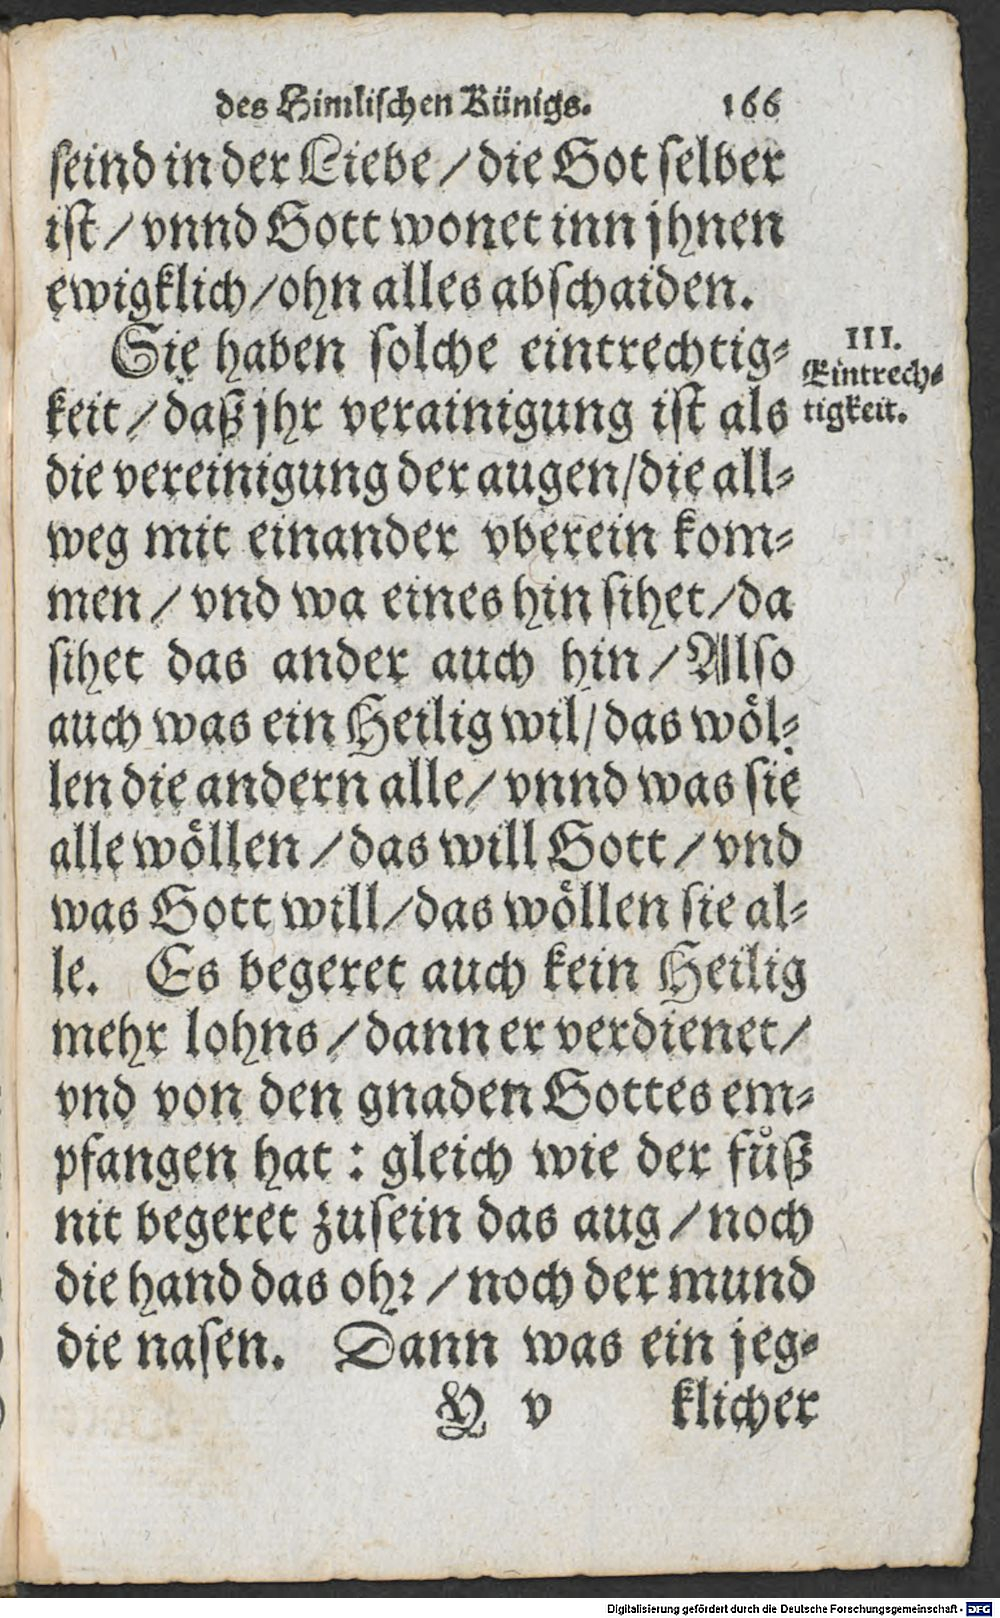 des Himlischen Künigs. 166
seind in der Liebe / die Got selber
ist / vnnd Gott wonet inn jhnen
ewigklich / ohn alles abschaiden.
Sie haben solche eintrechtig-
keit / daß jhr verainigung ist als
III.
Eintrech-
tigkeit.
die vereinigung der augen / die all-
weg mit einander vberein kom-
men / vnd wa eines hin sihet / da
sihet das ander auch hin / Also
auch was ein Heilig wil / das wöl-
len die andern alle / vnnd was sie
alle wöllen / das will Gott / vnd
was Gott will / das wöllen sie al-
le. Es begeret auch kein Heilig
mehr lohns / dann er verdienet /
vnd von den gnaden Gottes em-
pfangen hat : gleich wie der fůß
nit begeret zusein das aug / noch
die hand das ohr / noch der mund
die nasen. Dann was ein jeg-
Y v klicher
Digitalisierung gefördert durch die Deutsche Forschungsgemeinschaft - DFG